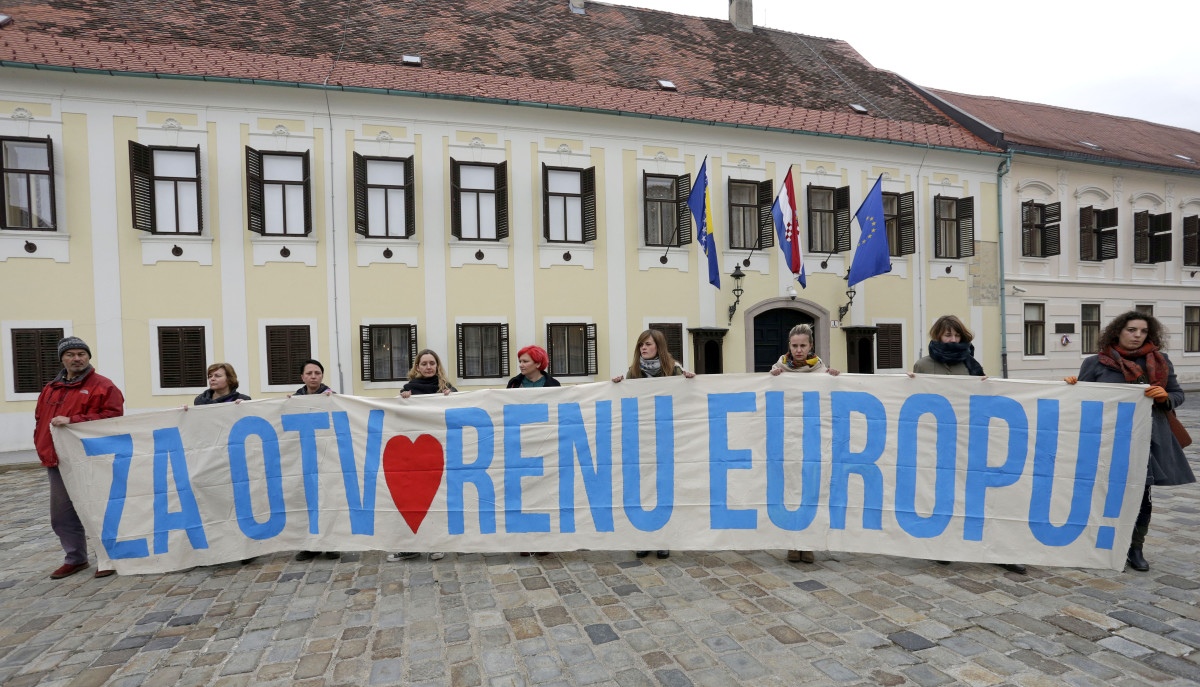 ZA OTV♥RENU EUROPU!